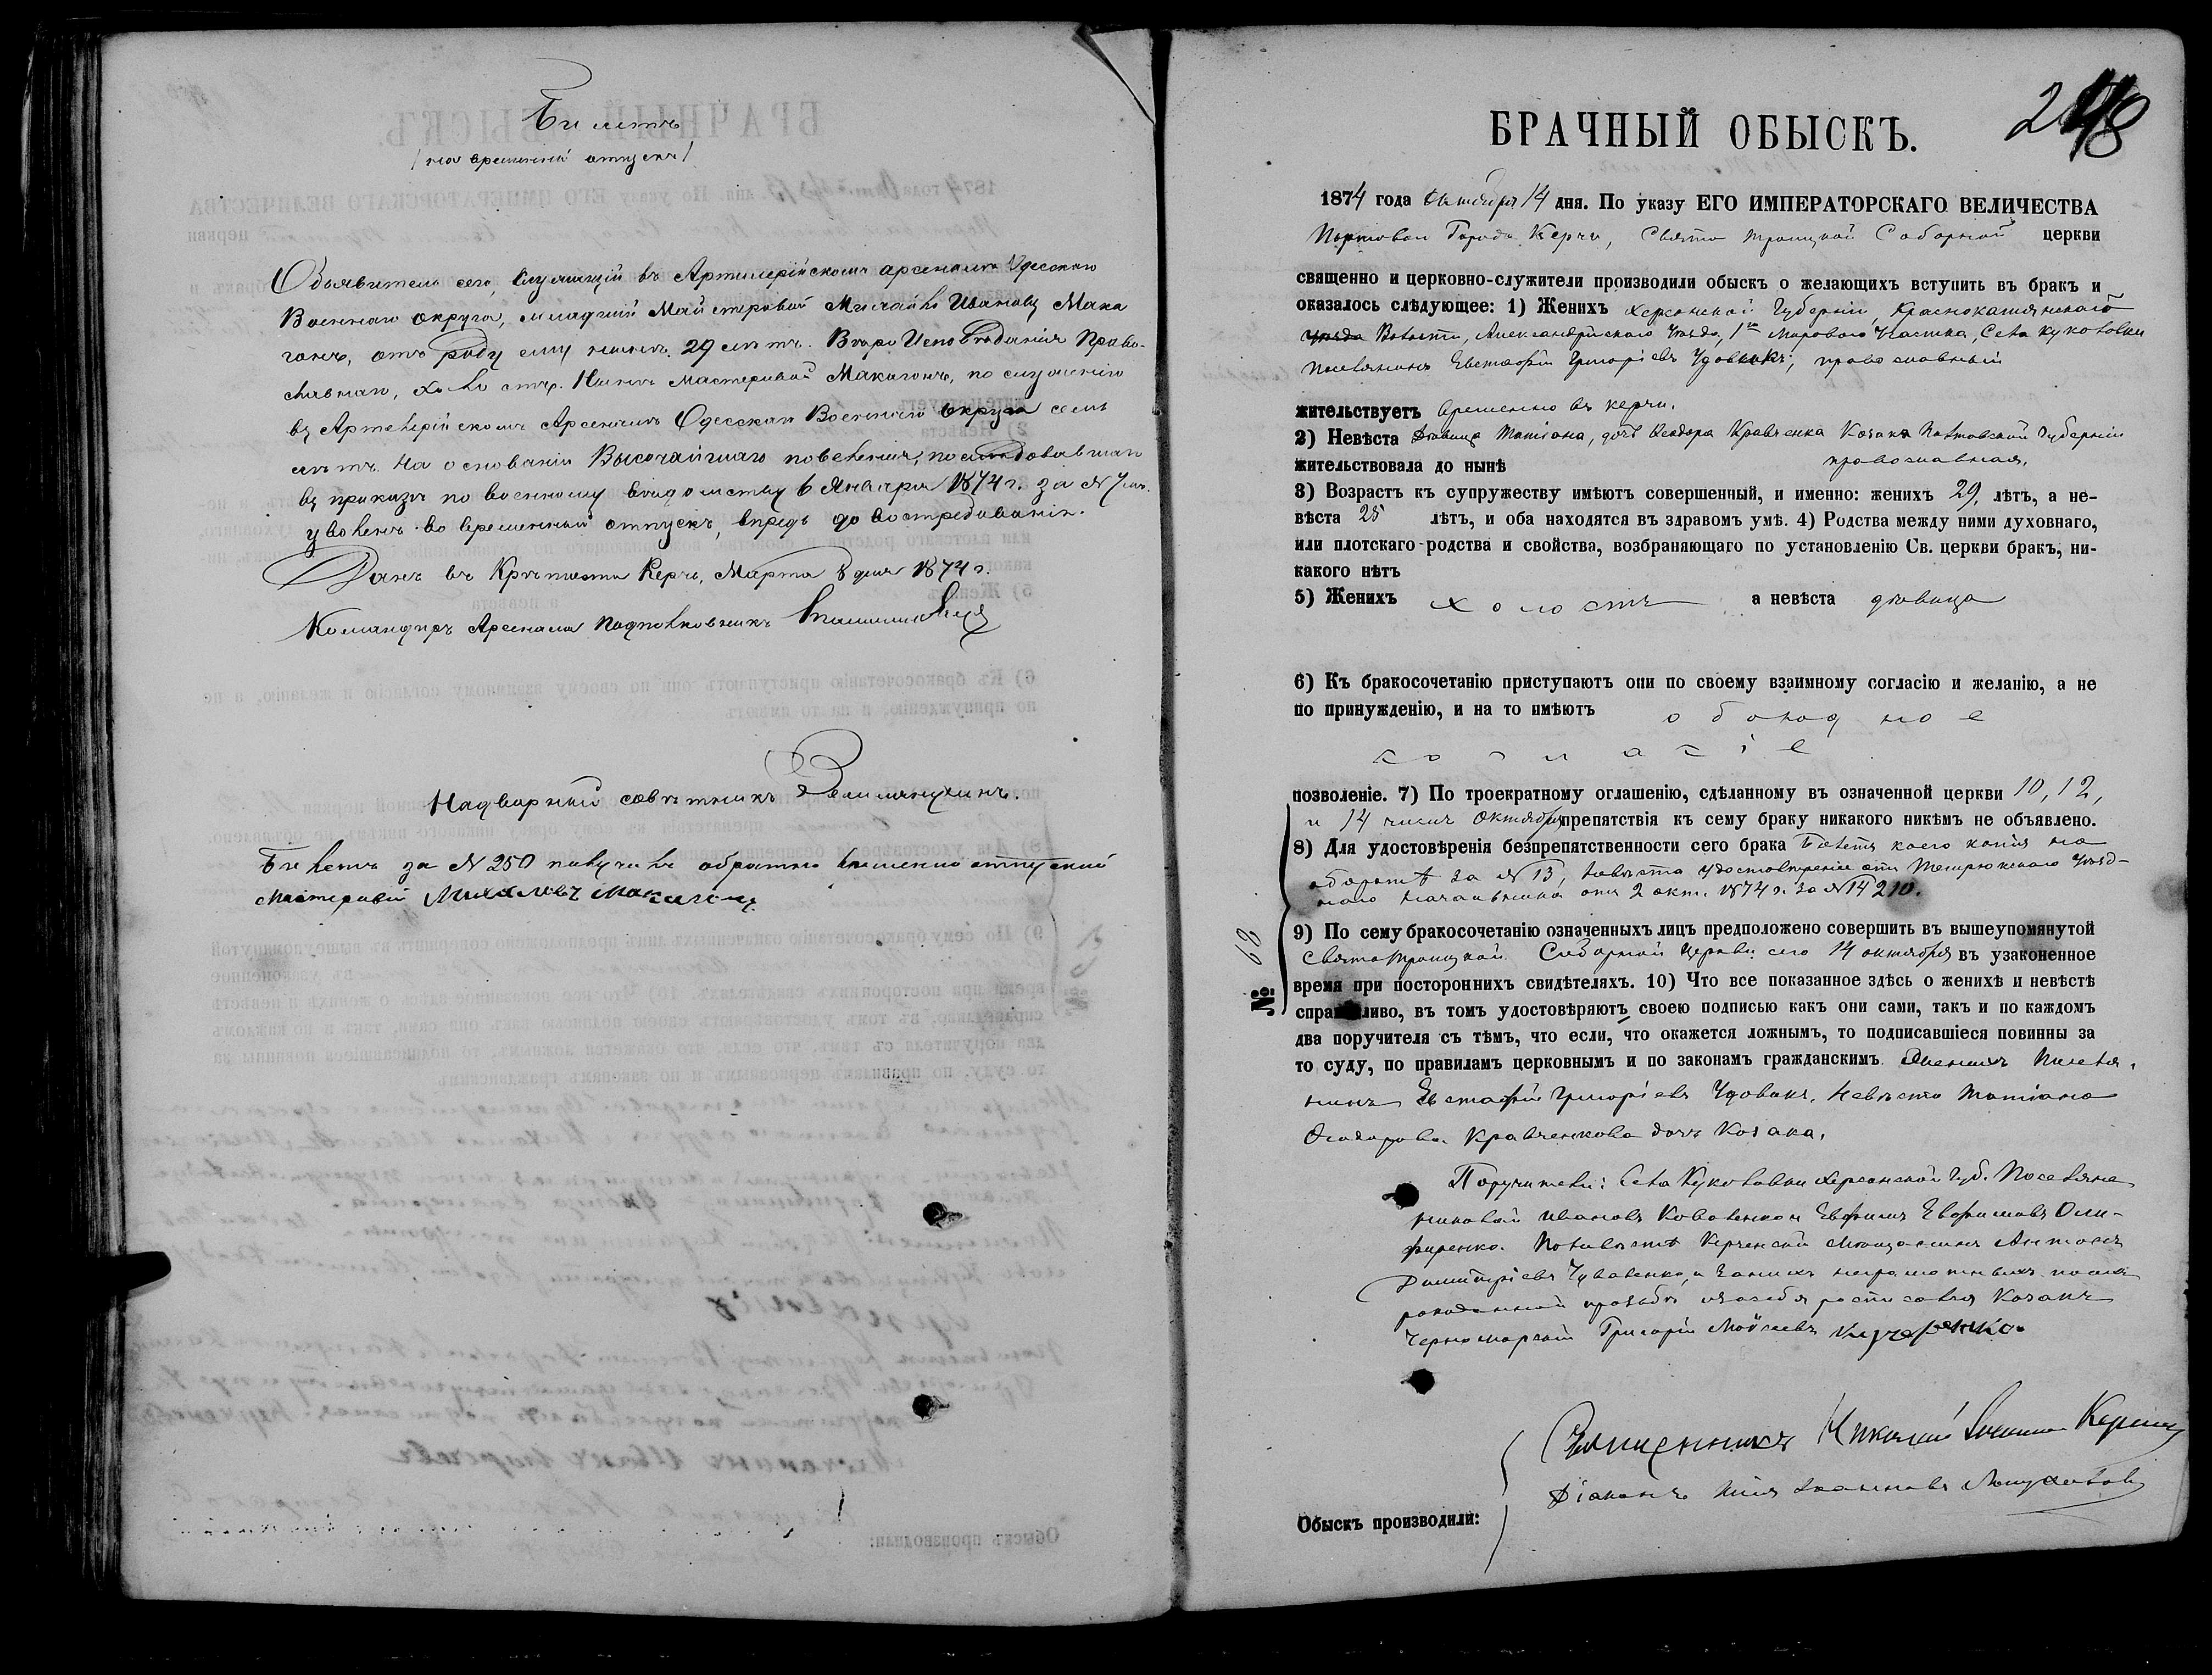 Билетъ
(на временный отпускъ)
Объявитель сего, служащій въ Артилерійскомъ арсеналѣ Одесскаго
Военнаго округа, младшій Мастеровой Михайло Ивановъ Мака
гонъ, отъ роду ему нынѣ 29 лѣтъ. Вѣроисповѣданія Право-
славнаго, холостъ. Нынѣ мастеровой Макагонъ, по служенію
въ Артилерійскомъ Арсеналѣ Одесскаго Военнаго округа семь
лѣтъ. На основаніи Высочайшаго повелѣнія, послѣдовавшаго
въ приказѣ по военному вѣдомству 6 Января 1874 г. за № 7
уволенъ во временный отпускъ, впредь до востребованія.
Данъ въ Крѣпости Керчь, Марта 8 дня 1874 г.
Командиръ Арсенала Подполковникъ
Надворный совѣтникъ
Билетъ за № 250 получилъ обратно временно отпускной
Мастеровой Михайловъ Макагонъ
248
БРАЧНЫЙ ОБЫСКЪ.
1874 года Октября 14 дня. По указу ЕГО ИМПЕРАТОРСКАГО ВЕЛИЧЕСТВА
Портовой Города Керчи, Свято Троицкой Соборной церкви
священно и церковно-служители производили обыскъ о желающихъ вступить въ бракъ и
оказалось слѣдующее: 1) Женихъ Херсонской Губерніи, Краснокаменскаго
уѣзда Волости, Александрійскаго Уѣзда, 1го Мироваго Участка, Села Куколовки
поселянинъ Евстафій Григоріевъ Удовикъ, православный
жительствуетъ временно въ керчи.
2) Невѣста дѣвица Татіана, дочь Ѳеодора Кравченка Козака Полтавской Губерніи
жительствовала до нынѣ православная.
3) Возрастъ къ супружеству имѣютъ совершенный, и именно: женихъ 29, лѣтъ, а не-
вѣста 25 лѣтъ, и оба находятся въ здравомъ умѣ. 4) Родства между ними духовнаго,
или плотскаго родства и свойства, возбраняющаго по установленію Св. церкви бракъ, ни-
какого нѣтъ
5) Женихъ холостъ а невѣста дѣвица
6) Къ бракосочетанію приступаютъ они по своему взаимному согласію и желанію, а не
по принужденію, и на то имѣютъ обоюдное
согласіе
позволеніе. 7) По троекратному оглашенію, сдѣланному въ означенной церкви 10, 12,
и 14 числъ Октября препятствія къ сему браку никакого никѣмъ не объявлено.
8) Для удостовѣренія безпрепятственности сего брака Билетъ коего копія на
оборотѣ за № 13, невѣста удостовѣреніе отъ Темрюкскаго Уѣзд-
наго Начальника отъ 2 окт. 1874 г. за № 14210.
№ 68
9) По сему бракосочетанію означенныхъ лицъ предположено совершить въ вышеупомянутой
Свято Троицкой Соборной Церкви сего 14 октября въ узаконенное
время при постороннихъ свидѣтеляхъ. 10) Что все показанное здѣсь о женихѣ и невѣстѣ
справедливо, въ томъ удостовѣряютъ своею подписью какъ они сами, такъ и по каждомъ
два поручителя съ тѣмъ, что если, что окажется ложнымъ, то подписавшіеся повинны за
то суду, по правиламъ церковнымъ и по законамъ гражданскимъ. Женихъ Поселя-
нинъ Евстафій Григоріевъ Удовикъ, Невѣста Татіана
Ѳеодорова Кравченкова дочь Козака.
Поручители: Села Куколовки Херсонской Губ. Поселяне
Николай Ивановъ Коваленко и Евфимъ Евфимовъ
По невѣстѣ Керченскій Мѣщанинъ Антонъ
Димитріевъ Чуваленко, и за нихъ неграмотныхъ
просьбѣ и за себя росписался Козакъ
Черноморскій Григорій Моѵсеевъ Кучеренко.
Обыскъ производили:
Священникъ Николай
Діаконъ Илія Іоанновъ